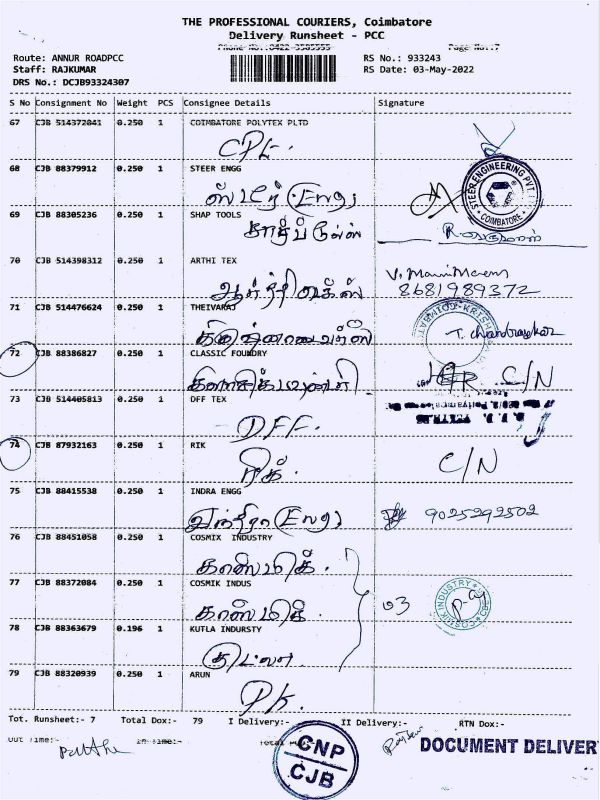 THE PROFESSIONAL COURIERS, Coimbatore
Delivery Runsheet - PCC
Phone No.:0422-3585555 Page No.:7
Route: ANNUR ROADPCC RS No.: 933243
Staff: RAJKUMAR RS Date: 03-May-2022
DRS No.: DCJB93324307
S No Consignment No Weight PCS Consignee Details Signature
67 CJB 514372041 0.250 1 COIMBATORE POLYTEX PLTD
CPL.
68 CJB 88379912 0.250 1 STEER ENGG
ஸ்டீர் (Eng)
STEER ENGINEERING PVT
COIMBATORE
69 CJB 88305236 0.250 1 SHAP TOOLS
70 CJB 514398312 0.250 1 ARTHI TEX
V. Manimaran
ஆர்த்தி டெக்ஸ் 8681989372
71 CJB 514476624 0.250 1 THEIVARAJ
T. Chandrasekar
72 CJB 88386827 0.250 1 CLASSIC FOUNDRY
C/N
73 CJB 514405813 0.250 1 DFF TEX
DFF.
74 CJB 87932163 0.250 1 RIK
ரிக் C/N
75 CJB 88415538 0.250 1 INDRA ENGG
இந்திரா (Eng) 9025292502
76 CJB 88451058 0.250 1 COSMIX INDUSTRY
காஸ்மிக்.
77 CJB 88372084 0.250 1 COSMIK INDUS
காஸ்மிக் 03
COSMIK INDUSTRY CBE
78 CJB 88363679 0.196 1 KUTLA INDURSTY
குட்லா
79 CJB 88320939 0.250 1 ARUN
PK.
Tot. Runsheet:- 7 Total Dox:- 79 I Delivery:- II Delivery:- RTN Dox:-
Out Time:- In Time:-
CNP
CJB
DOCUMENT DELIVER